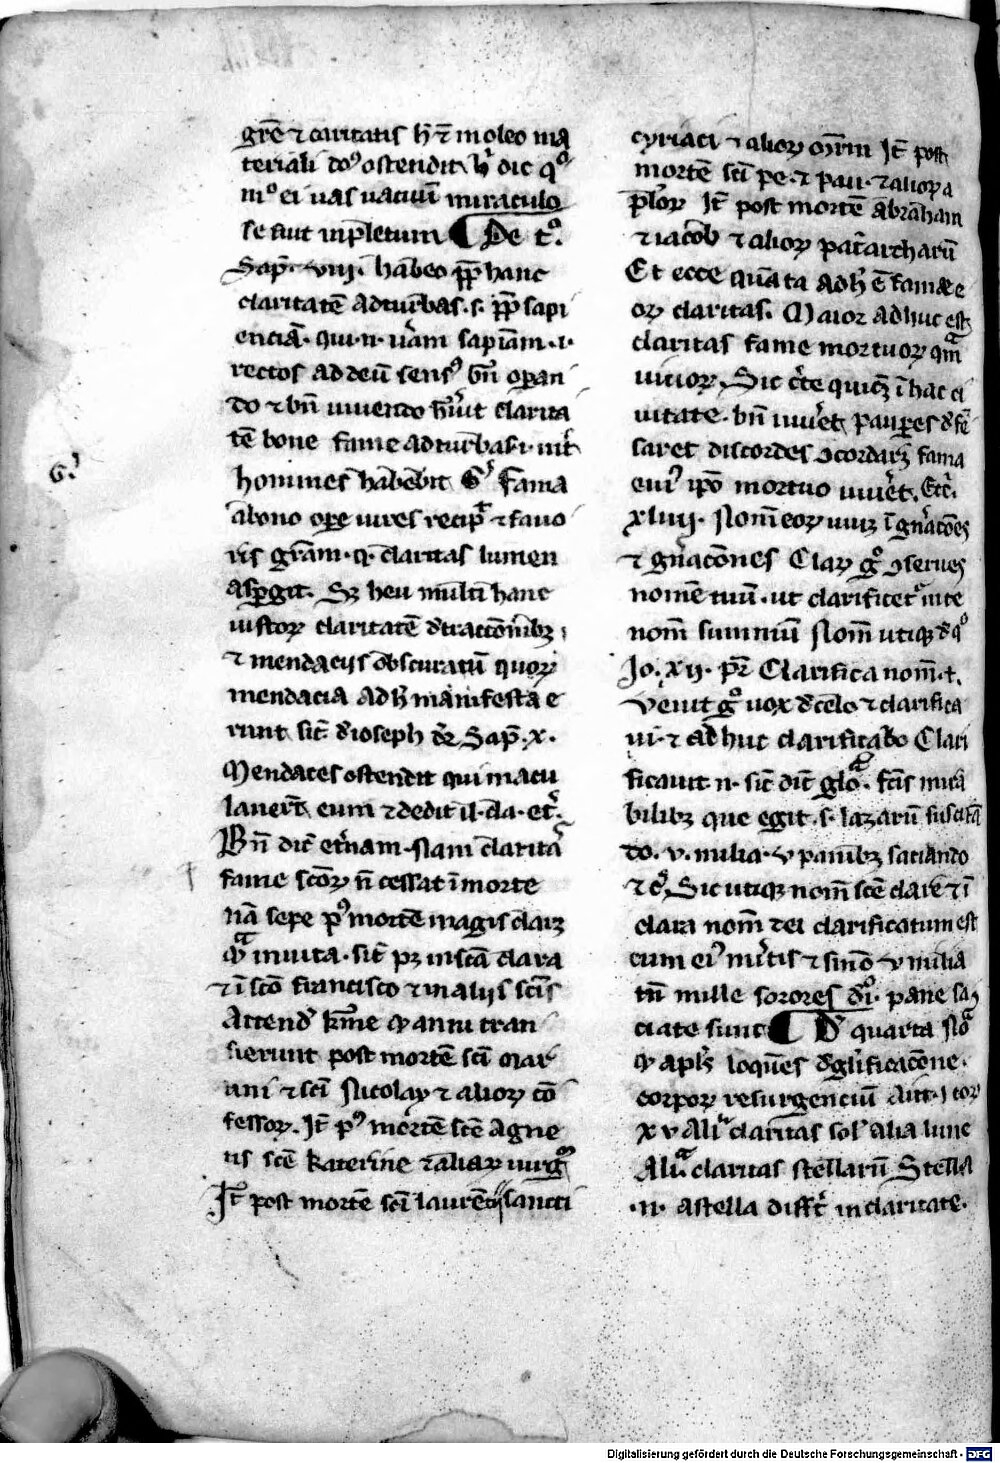 grē ⁊ caritatis h̄ ē in oleo ma
teriali do⁹ ostendit h̄ dic qͦ
mͦ ei uas uacuū miraculo
se fuit inpletum ¶ De tͦ.
Sap̄. viij. habeo pp̄ hanc
claritatē ad turbas .s. pp̄ sapi
enciā. qui .n. uām sapiam .i.
rectos ad deū sens⁹ bn̄ operan
do ⁊ bn̄ uiuendo hūt clarita
tē bone fame ad turbas .i. int̄
homines habebit G' fama
a bono ope uires recip ⁊ fauo
ris grām. q. claritas lumen
aspgit. Sꝫ heu multi hanc
iustoꝝ claritatē dtractōnibꝫ
⁊ mendacijs obscurātū quoꝝ
mendacia ad h̄ manifesta e
runt sic̄ d ioseph dr̄ Sap̄. x.
Mendaces ostendit qui macu
lauer̄t eum ⁊ dedit il. cla. et̄.
Bn̄ dic̄ et̄nam. Nam clarita
fame sc̄oꝝ n̄ cessat ī morte
nā sepe p⁹ mortē magis claꝫ
qͣ in uita. sic̄ pꝫ in sc̄a clara
⁊ ī sc̄o francisco ⁊ in alijs sc̄is
Attend' kr̄me qͣ anni tran
sierunt post mortē sc̄i mar
tini ⁊ sc̄i Nicolay ⁊ alioꝝ cō
fessoꝝ. It̄ p⁹ mortē sc̄e Agne
tis sc̄e katerine ⁊ aliaꝝ uirgͫ
It̄ post mortē sc̄i laurēcij sancti
G'
cyriaci ⁊ alioꝝ mr̄m It̄ post
mortē sc̄i pe. ⁊ pau. ⁊ alioꝝ a
p̄loꝝ It̄ post mortē abraham
⁊ iacob ⁊ alioꝝ pat̄archarū
Et ecce quāta adh̄ ē fama e
oꝝ claritas. Maior adhuc est
claritas fame mortuoꝝ qͣm
uiuoꝝ. Sic c̄te quicꝫ ī hac ci
uitate. bn̄ uiu̅et pauꝑes d̄fē
saret discordes ꝯcordaꝫ fama
eius ip̄o mortuo uiuet. Ecc̄.
xliiij. Nom̄ eoꝝ uiuꝫ ī gn̄acōes
⁊ gn̄acōnes Claꝝ gͦ ꝯserues
nomē tuū. ut clarificet² in te
nom̄ summū Nom̄ utiqꝫ d̄ qͦ
Jo. xij. pr̄ Clarifica nom̄ .t.
Venit gͦ uox d̄ celo ⁊ clarifica
ui. ⁊ adhuc clarificabo Clari
ficauit .n. sic̄ dic̄ glo. fc̄is mira
bilibꝫ que egit .s. lazarū suscitā
do. v. milia. v panibꝫ saciando
⁊ c̄. Sic utiqꝫ nom̄ sc̄e clare ⁊ ī
clara nom̄ dei clarificatum est
cum ei⁹ mr̄itis ⁊ sino v milia
tn̄ mille sorores di. pane sa
ciate sunt ¶ D' quarta Noͣ
qͣ apl̄s loqn̄es d̄ gl̄ificacōne.
corpoꝝ resurgenciū Ait. I coꝝ
xv Aliͣ claritas sol' alia lune
Aliͣ claritas stellarū Stella
.n. a stella diff̄t in claritate.
Digitalisierung gefördert durch die Deutsche Forschungsgemeinschaft - DFG